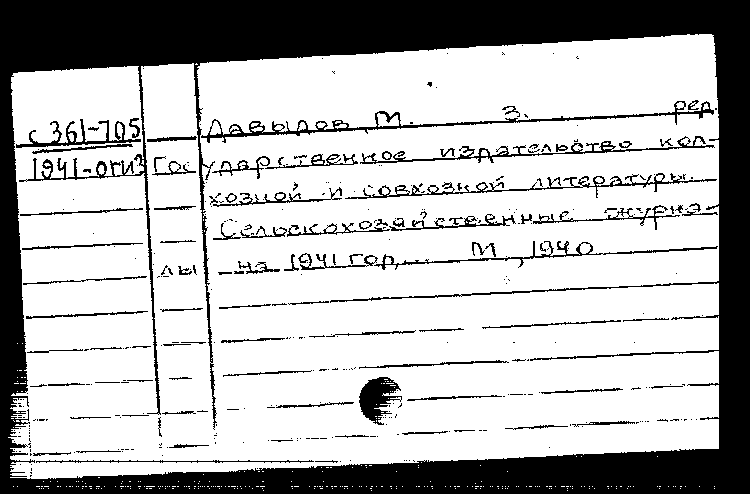 с 361-705 Давыдов, М. З. ред.
1941-огиз Государственное издательство кол-
хозной и совхозной литературы.
Сельскохозяйственные журна-
лы на 1941 год,... М, 1940